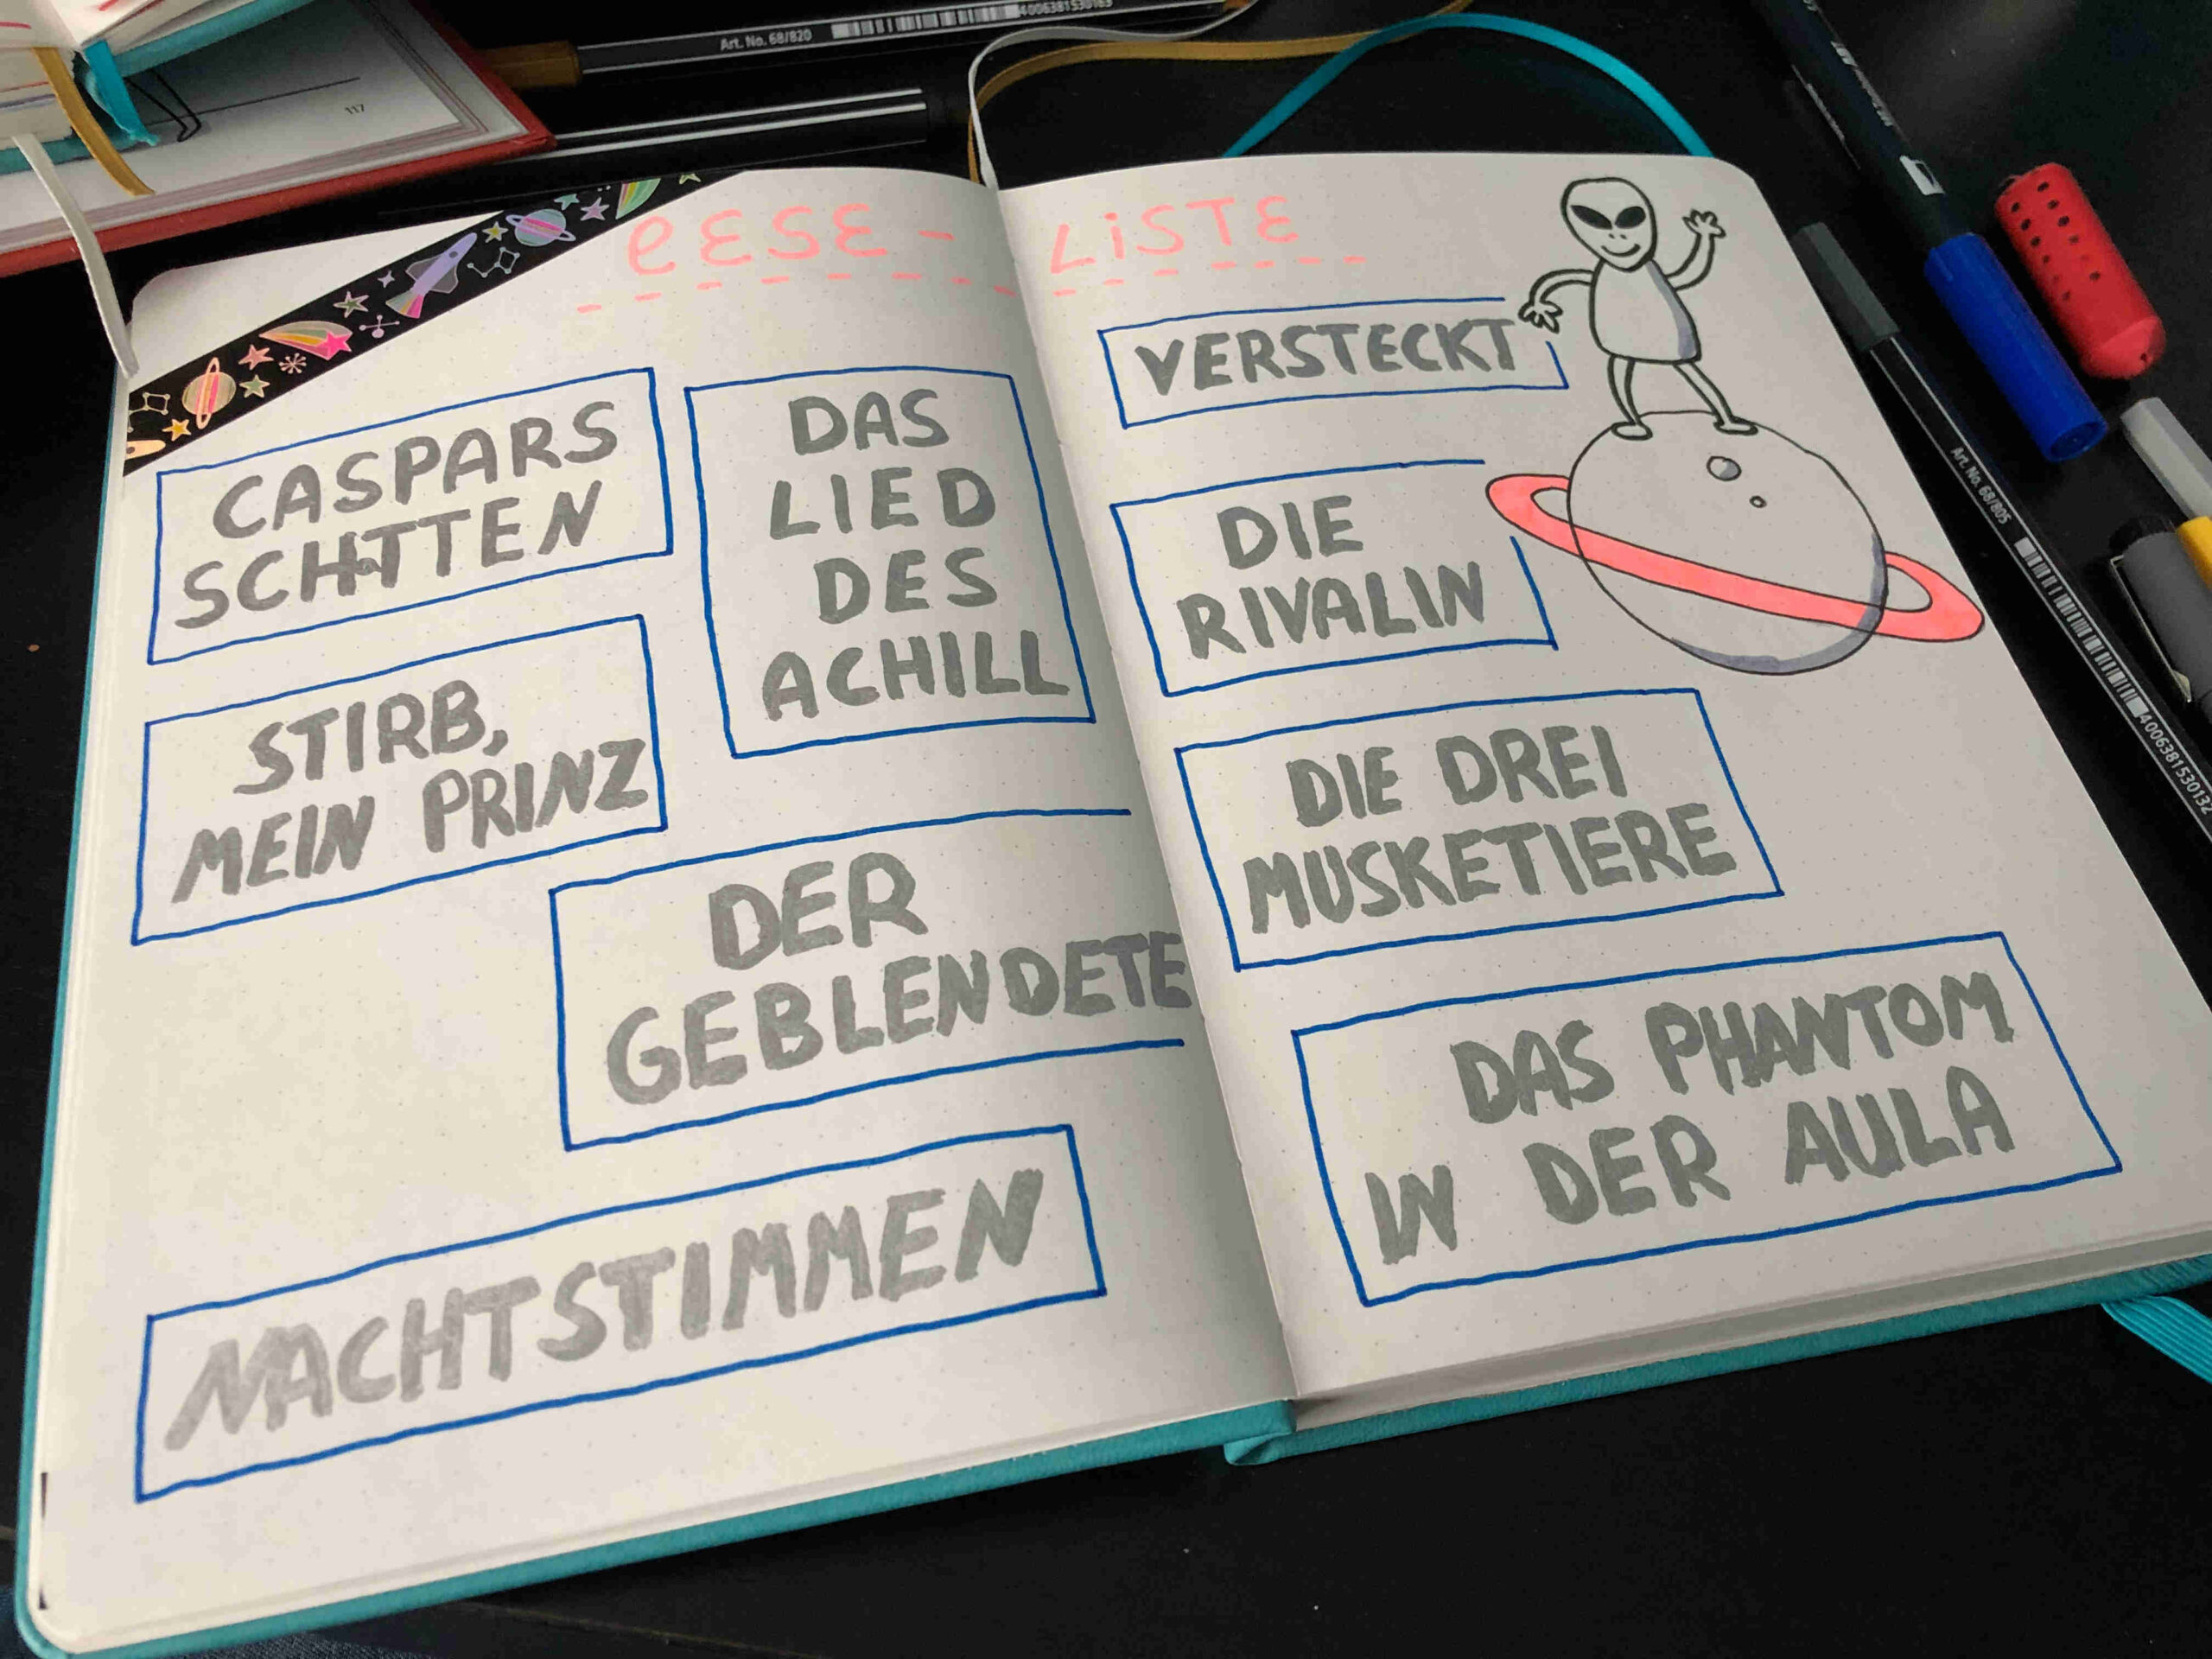 Art. No. 68/820
4006381530163
117
LESE- LISTE
CASPARS
SCHTTEN
STIRB,
MEIN PRINZ
DAS
LIED
DES
ACHILL
DER
GEBLENDETE
NACHTSTIMMEN
VERSTECKT
DIE
RIVALIN
DIE DREI
MUSKETIERE
DAS PHANTOM
IN DER AULA
Art. No. 68/805
4006381530132